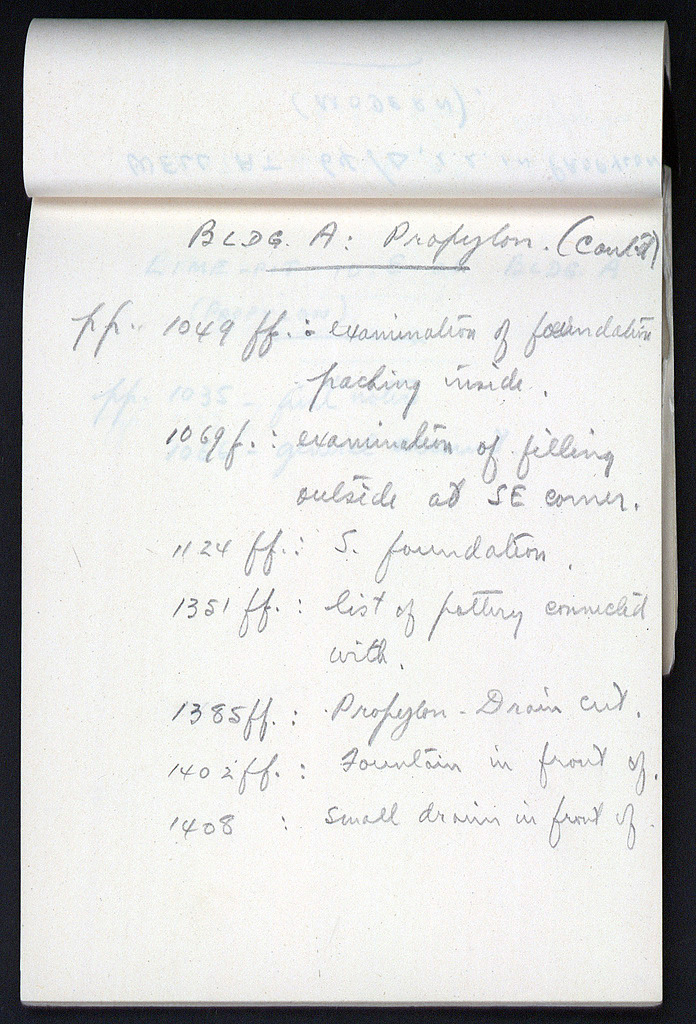 BLDG. A: Propylon. (Cont'd)
pp. 1049 ff.: examination of foundation
packing inside.
1069f.: examination of filling
outside at SE corner.
1124 ff.: S. foundation.
1351 ff.: list of pottery connected
with.
1385ff.: Propylon - Drain cut.
1402ff.: Fountain in front of.
1408 : small drain in front of.